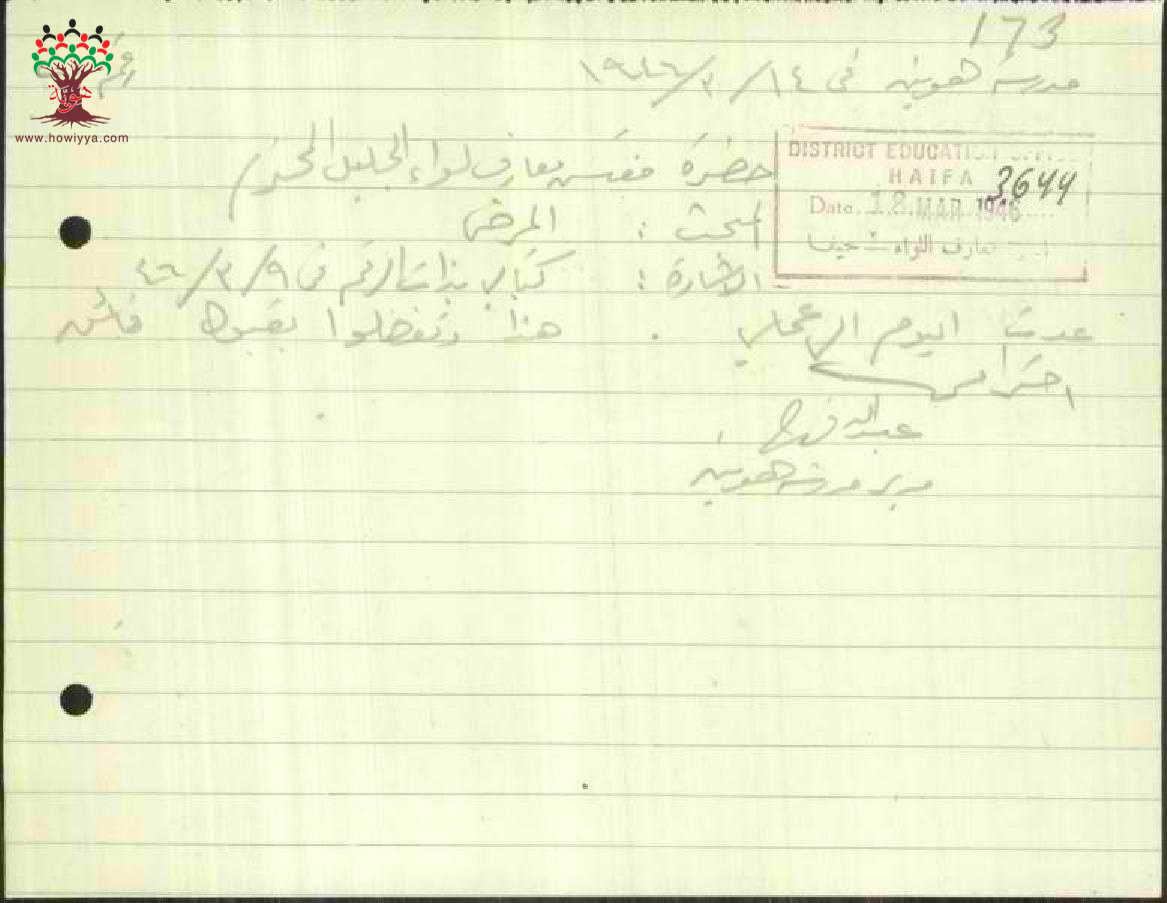 173
مدرسة هونين في ١٤/٣/١٩٤٦
www.howiyya.com
حضرة مفتش معارف لواء الجليل المحترم
DISTRICT EDUCATION
HAIFA
3644
Date 18 MAR 1946
معارف اللواء حيفا
البحث : المرض
الاشارة : كتابي بذات الرقم في ٩/٣/٤٦
عدت اليوم الى عملي . هذا وتفضلوا بقبول فائق
احترامي
عبدالله
مدير مدرسة هونين